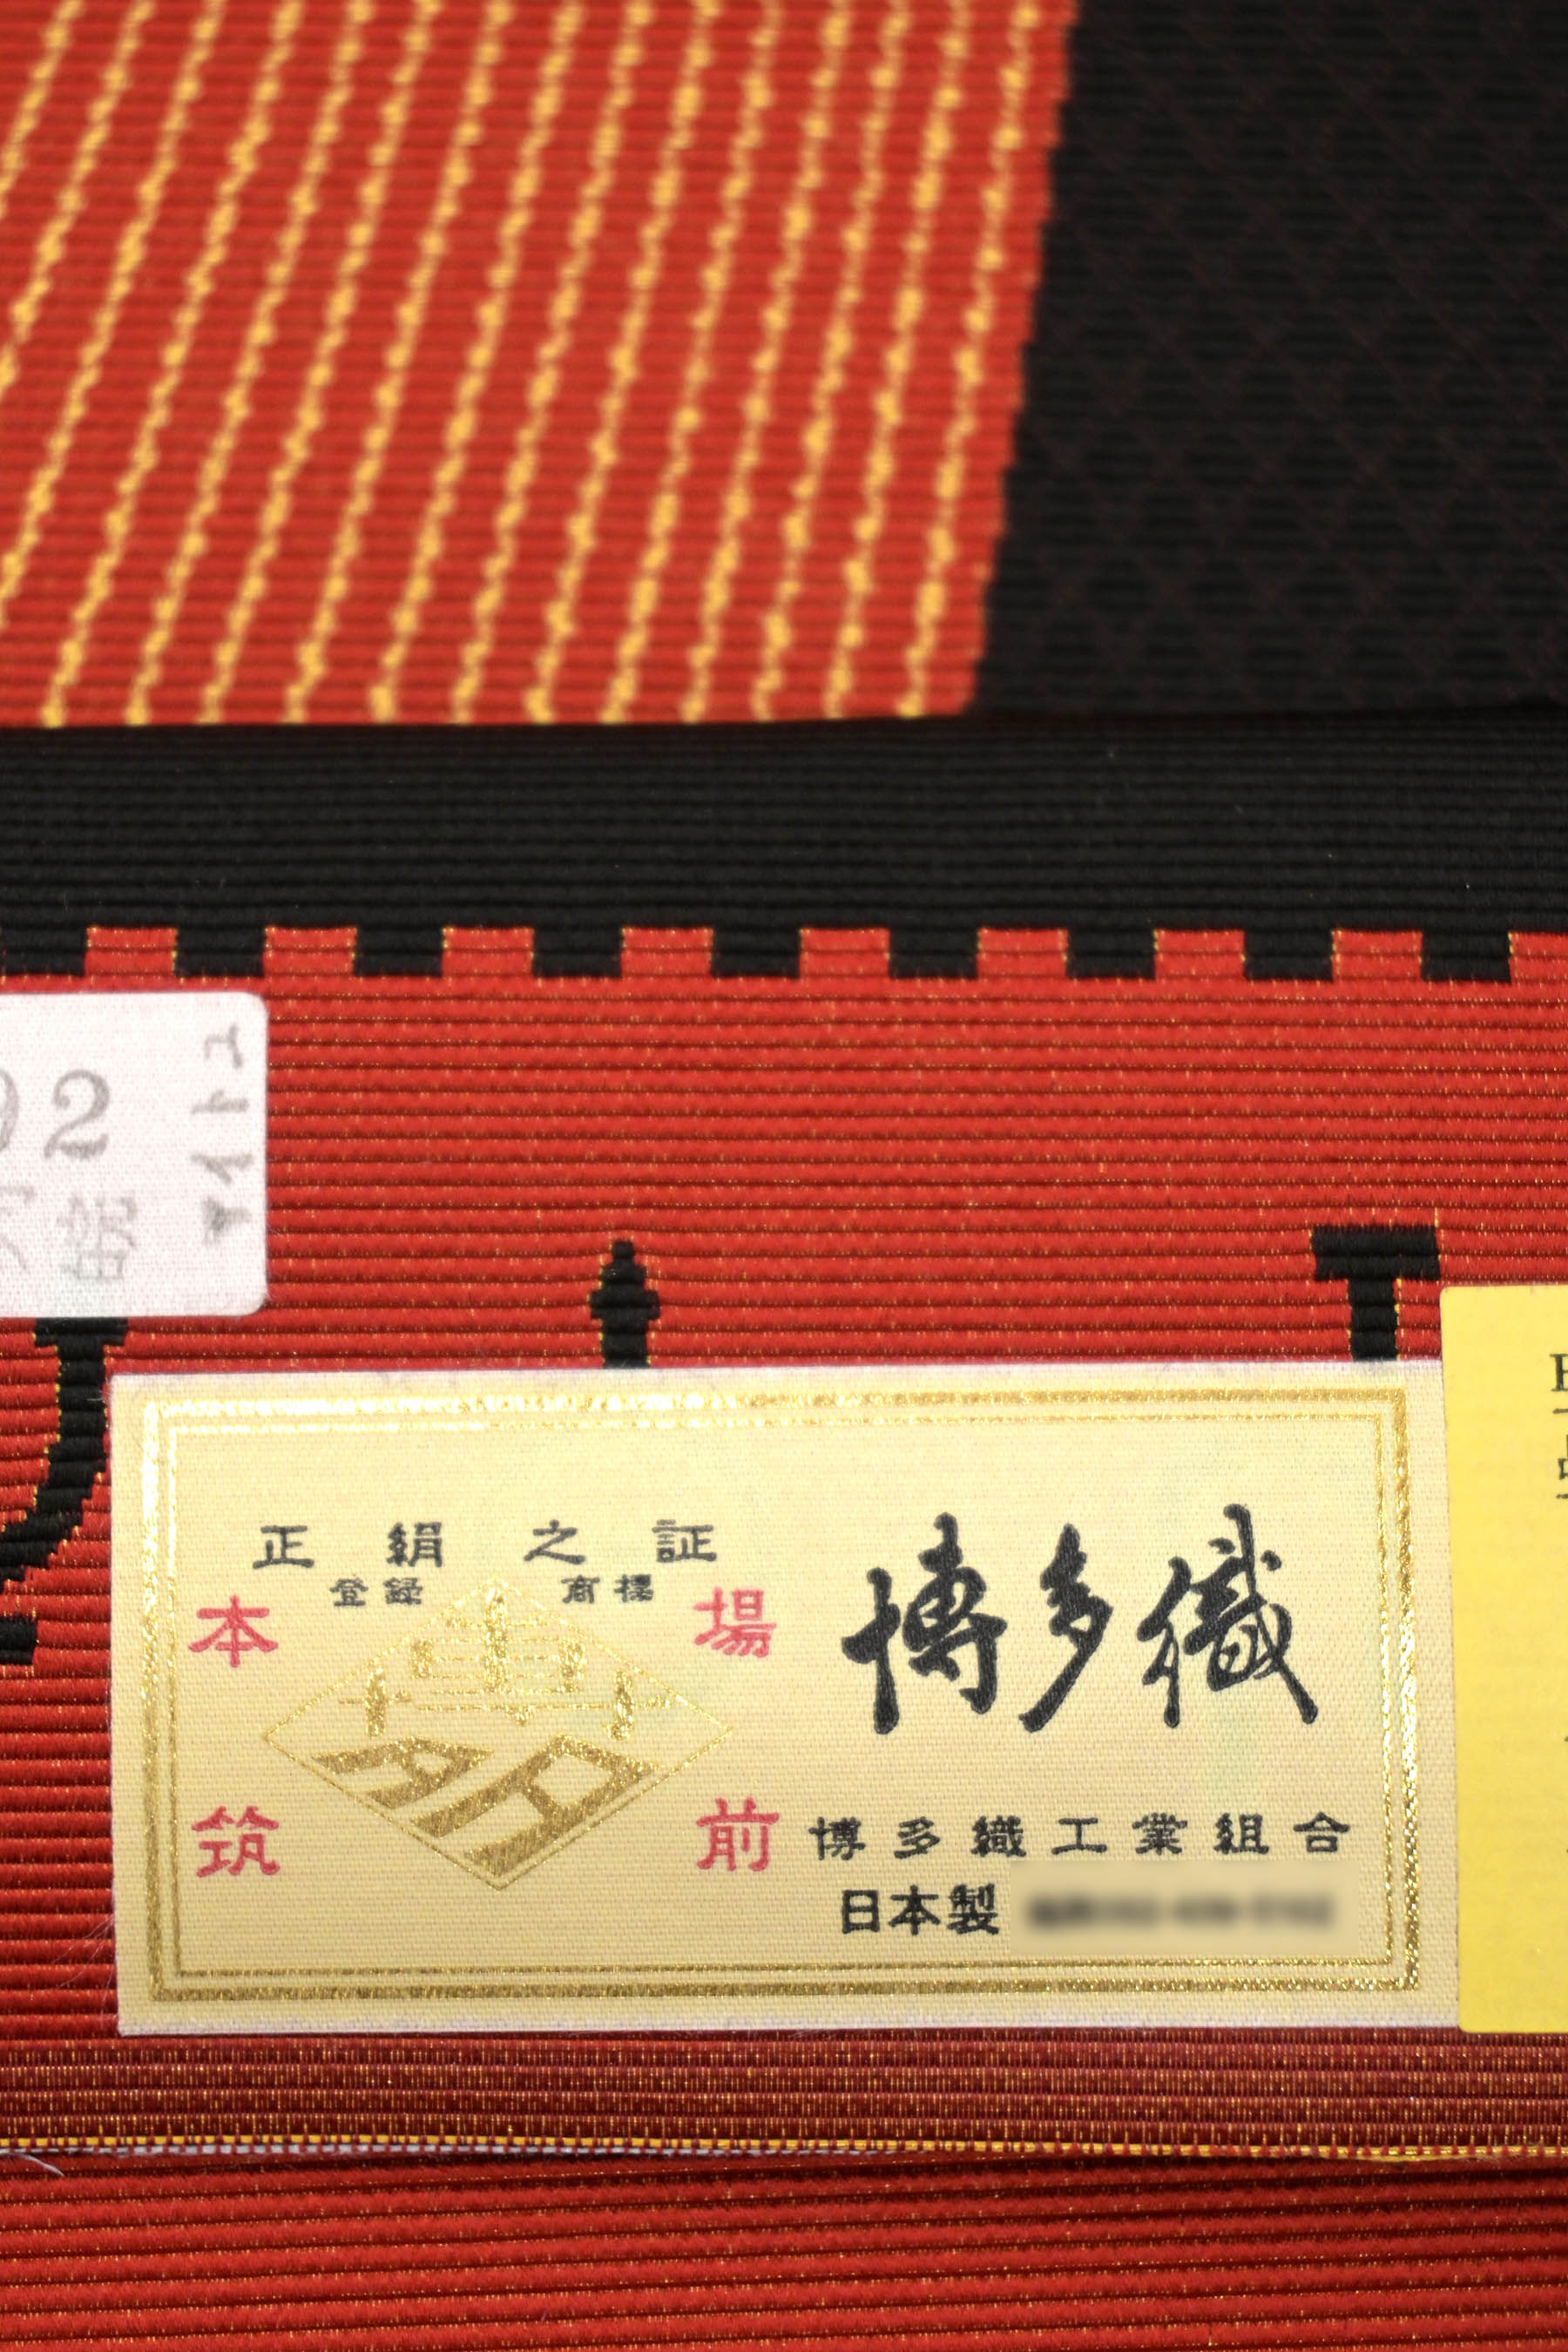 92
正絹之証
登録 商標
本場
筑前
博多織
博多織工業組合
日本製